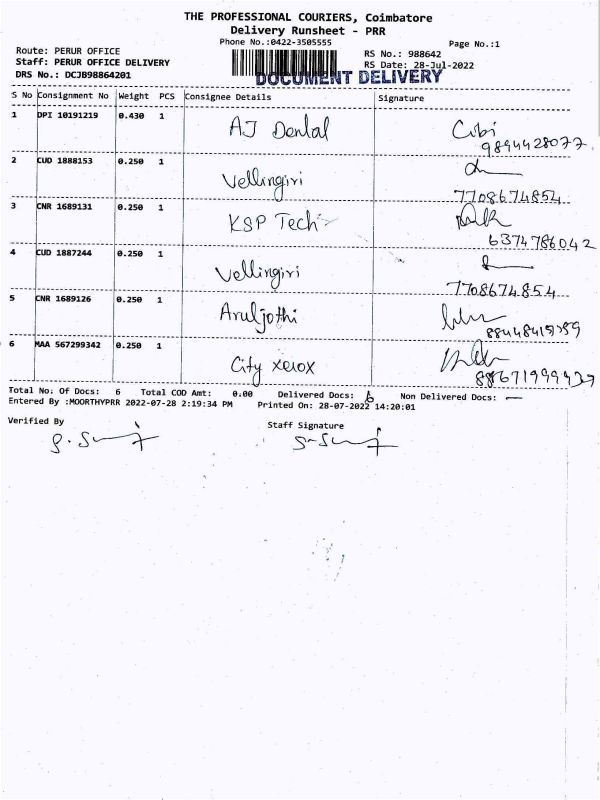 THE PROFESSIONAL COURIERS, Coimbatore
Delivery Runsheet - PRR
Phone No.:0422-3505555
Page No.:1
Route: PERUR OFFICE
RS No.: 988642
Staff: PERUR OFFICE DELIVERY
RS Date: 28-Jul-2022
DRS No.: DCJB98864201
DOCUMENT DELIVERY
S No Consignment No Weight PCS Consignee Details Signature
1 DPI 10191219 0.430 1 AJ Dental Cibi
9894428077
2 CUD 1888153 0.250 1 Vellingiri
7708674854
3 CNR 1689131 0.250 1 KSP Tech
6374786042
4 CUD 1887244 0.250 1 Vellingiri
7708674854
5 CNR 1689126 0.250 1 Aruljothi
6 MAA 567299342 0.250 1 City xerox
Total No: Of Docs: 6 Total COD Amt: 0.00 Delivered Docs: 6 Non Delivered Docs: —
Entered By :MOORTHYPRR 2022-07-28 2:19:34 PM Printed On: 28-07-2022 14:20:01
Verified By Staff Signature